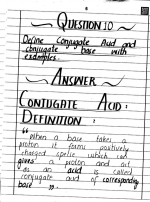 QUESTION 10
Define Conjugate Acid and
conjugate base with
examples.
ANSWER
CONJUGATE ACID:
DEFINITION:
"When a base takes a
proton it forms positively
charged specie which can
gives a proton and act
as an acid is called
conjugate acid of corresponding
base".